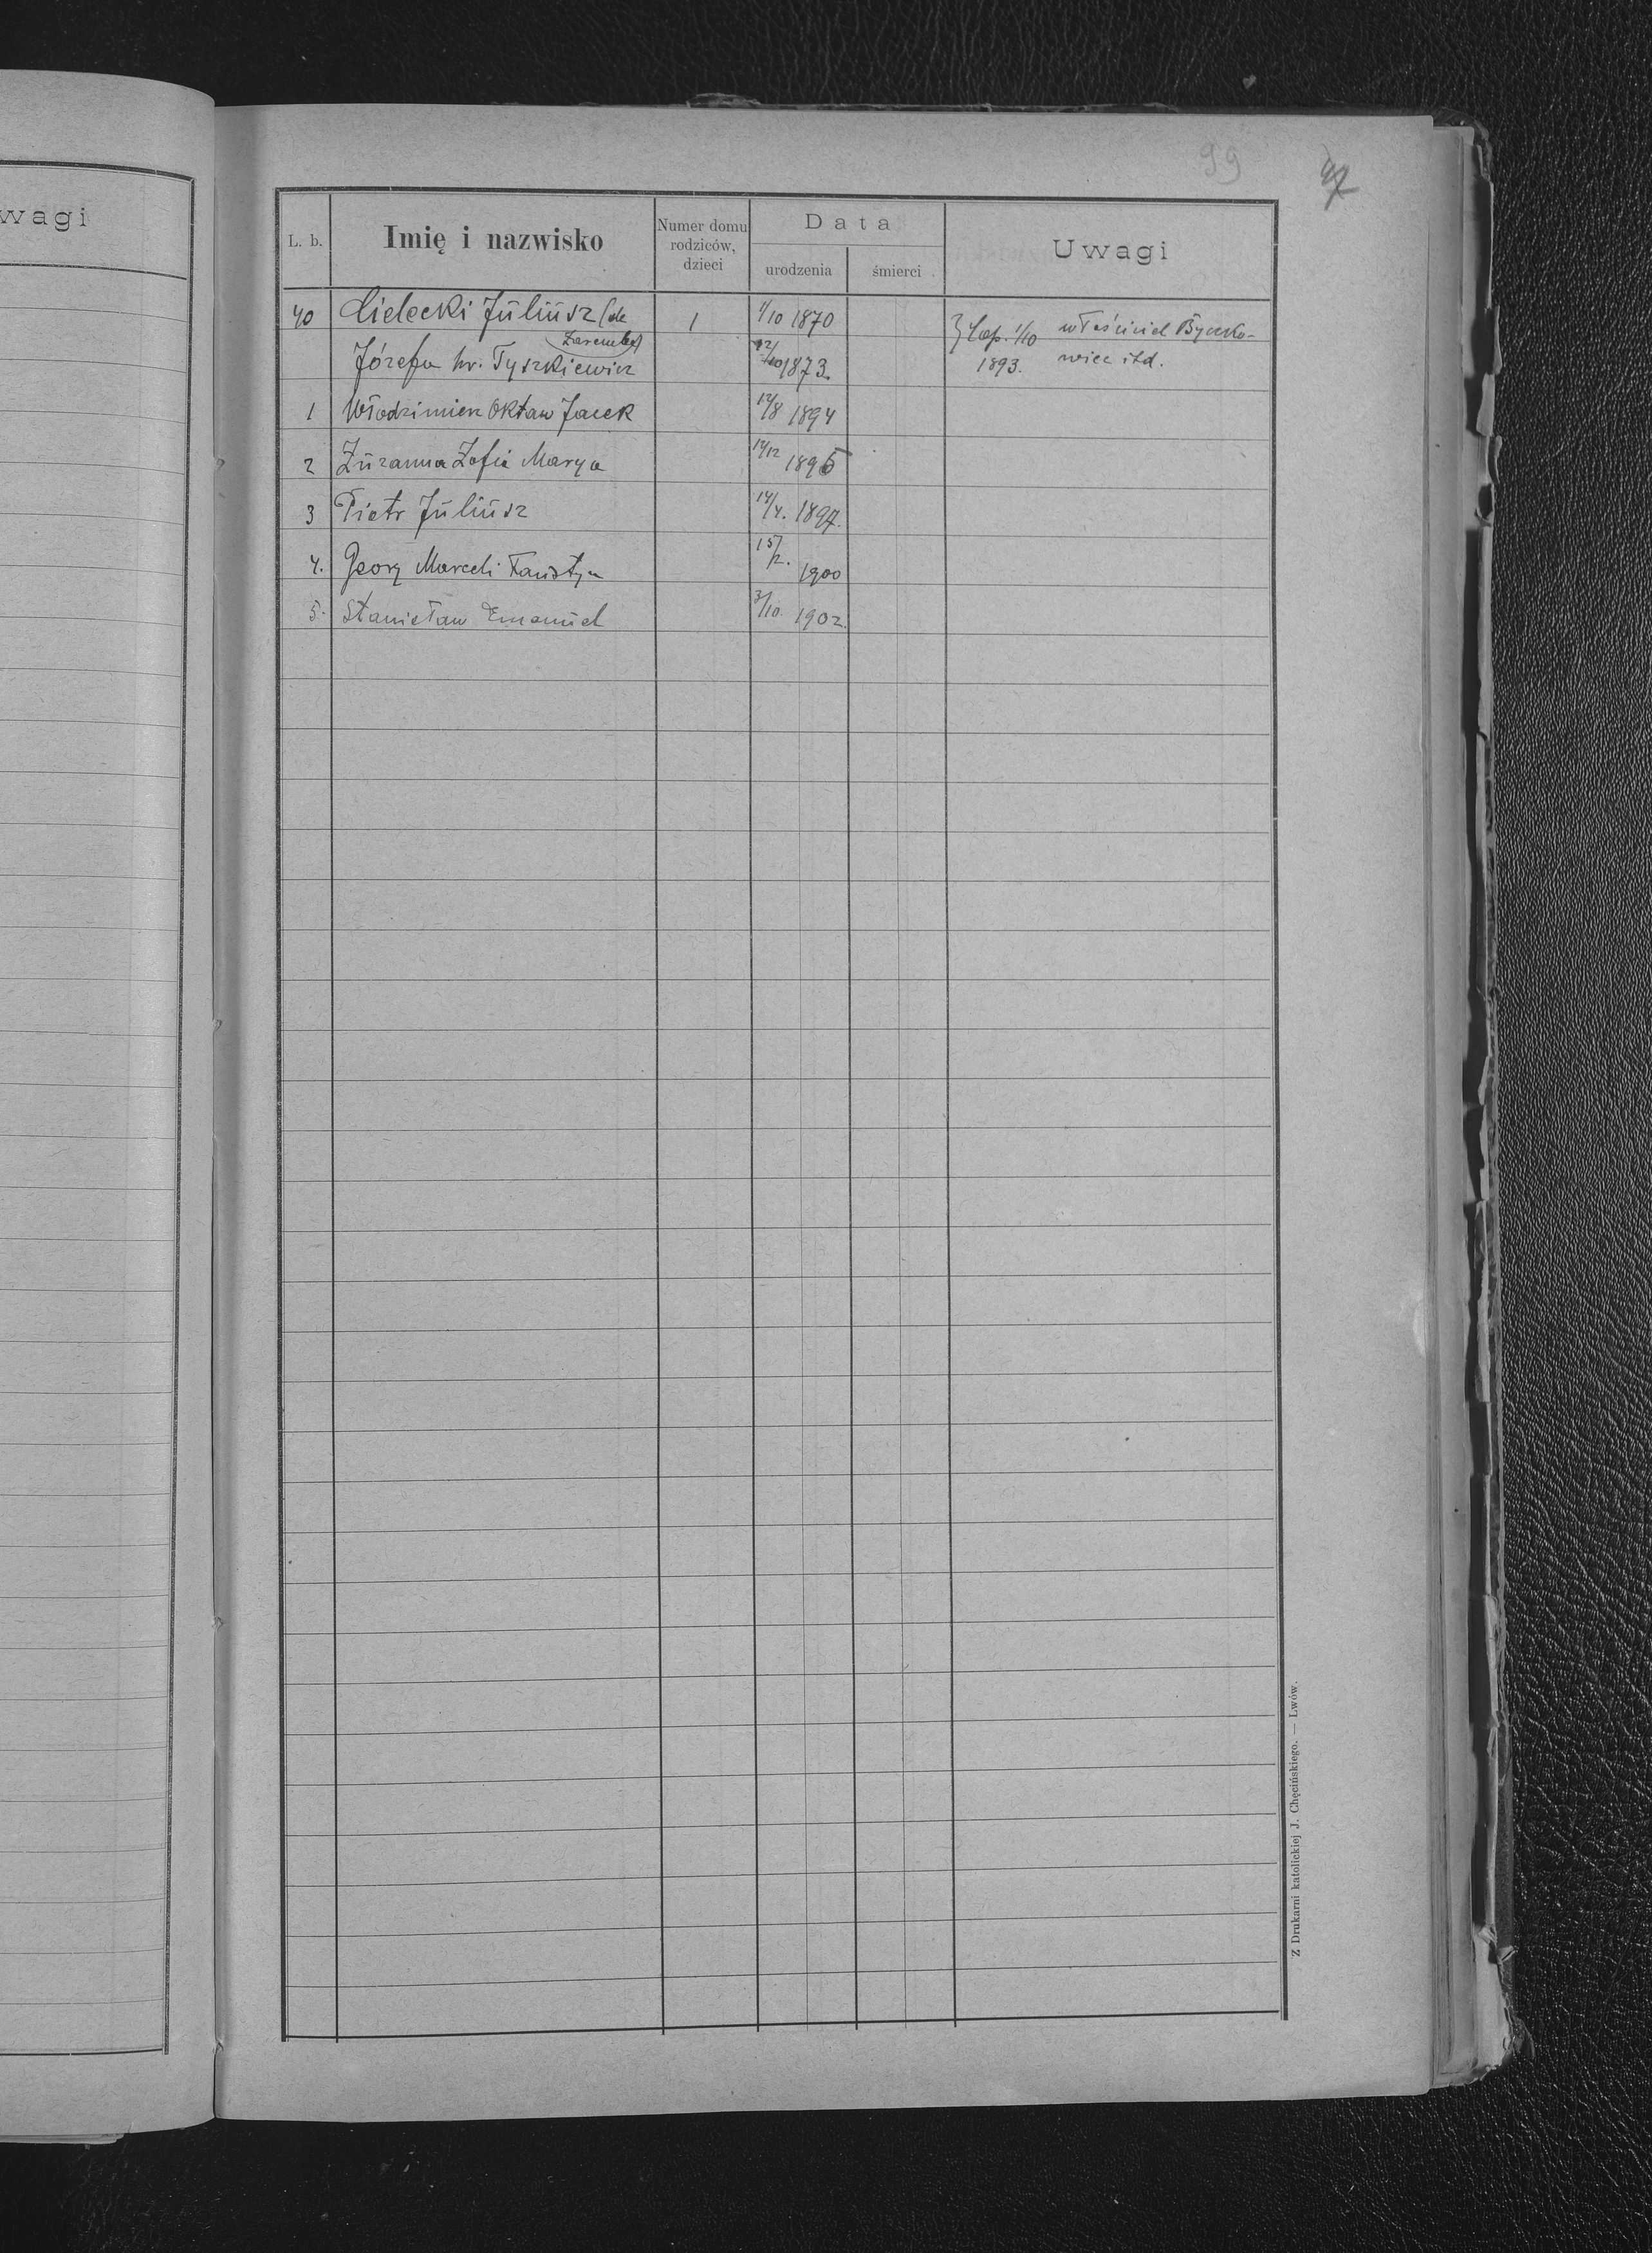 wagi
99
L. b.
Imię i nazwisko
Numer domu
rodziców,
dzieci
Data
urodzenia
śmierci
Uwagi
40 Cielecki Juliusz (de 1 1/10 1870 } Cop. 1/10 właściciel Byczko-
Zaremba)
Józefa hr. Tyszkiewicz 12/10 1873. 1893. wiec itd.
1 Włodzimierz Oktaw Jacek 12/8 1894
2 Zuzanna Zofia Marya 14/12 1895
3 Piotr Juliusz 14/4. 1897.
4. Georg Marceli Faustyn 15/2. 1900
5. Stanisław Emanuel 3/10. 1902.
Z Drukarni katolickiej J. Chęcińskiego. — Lwów.